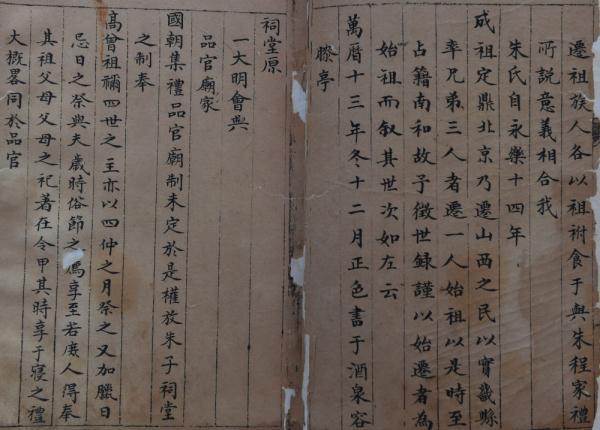 遷祖族人各以祖祔食于與朱程家禮
所説意義相合我
朱氏自永樂十四年
成祖定鼎北京乃遷山西之民以實畿縣
率兄弟三人者遷一人始祖以是時至
占籍南和故予徵世録謹以始遷者為
始祖而叙其世次如左云
萬曆十三年冬十二月正色書于酒泉容
膝亭
祠堂原
一大明會典
品官廟家
國朝集禮品官廟制未定於是權放朱子祠堂
之制奉
高曾祖禰四世之主亦以四仲之月祭之又加臘日
忌日之祭與夫歲時俗節之薦享至若庶人得奉
其祖父母父母之祀著在令甲其時享于寢之禮
大槪畧同於品官